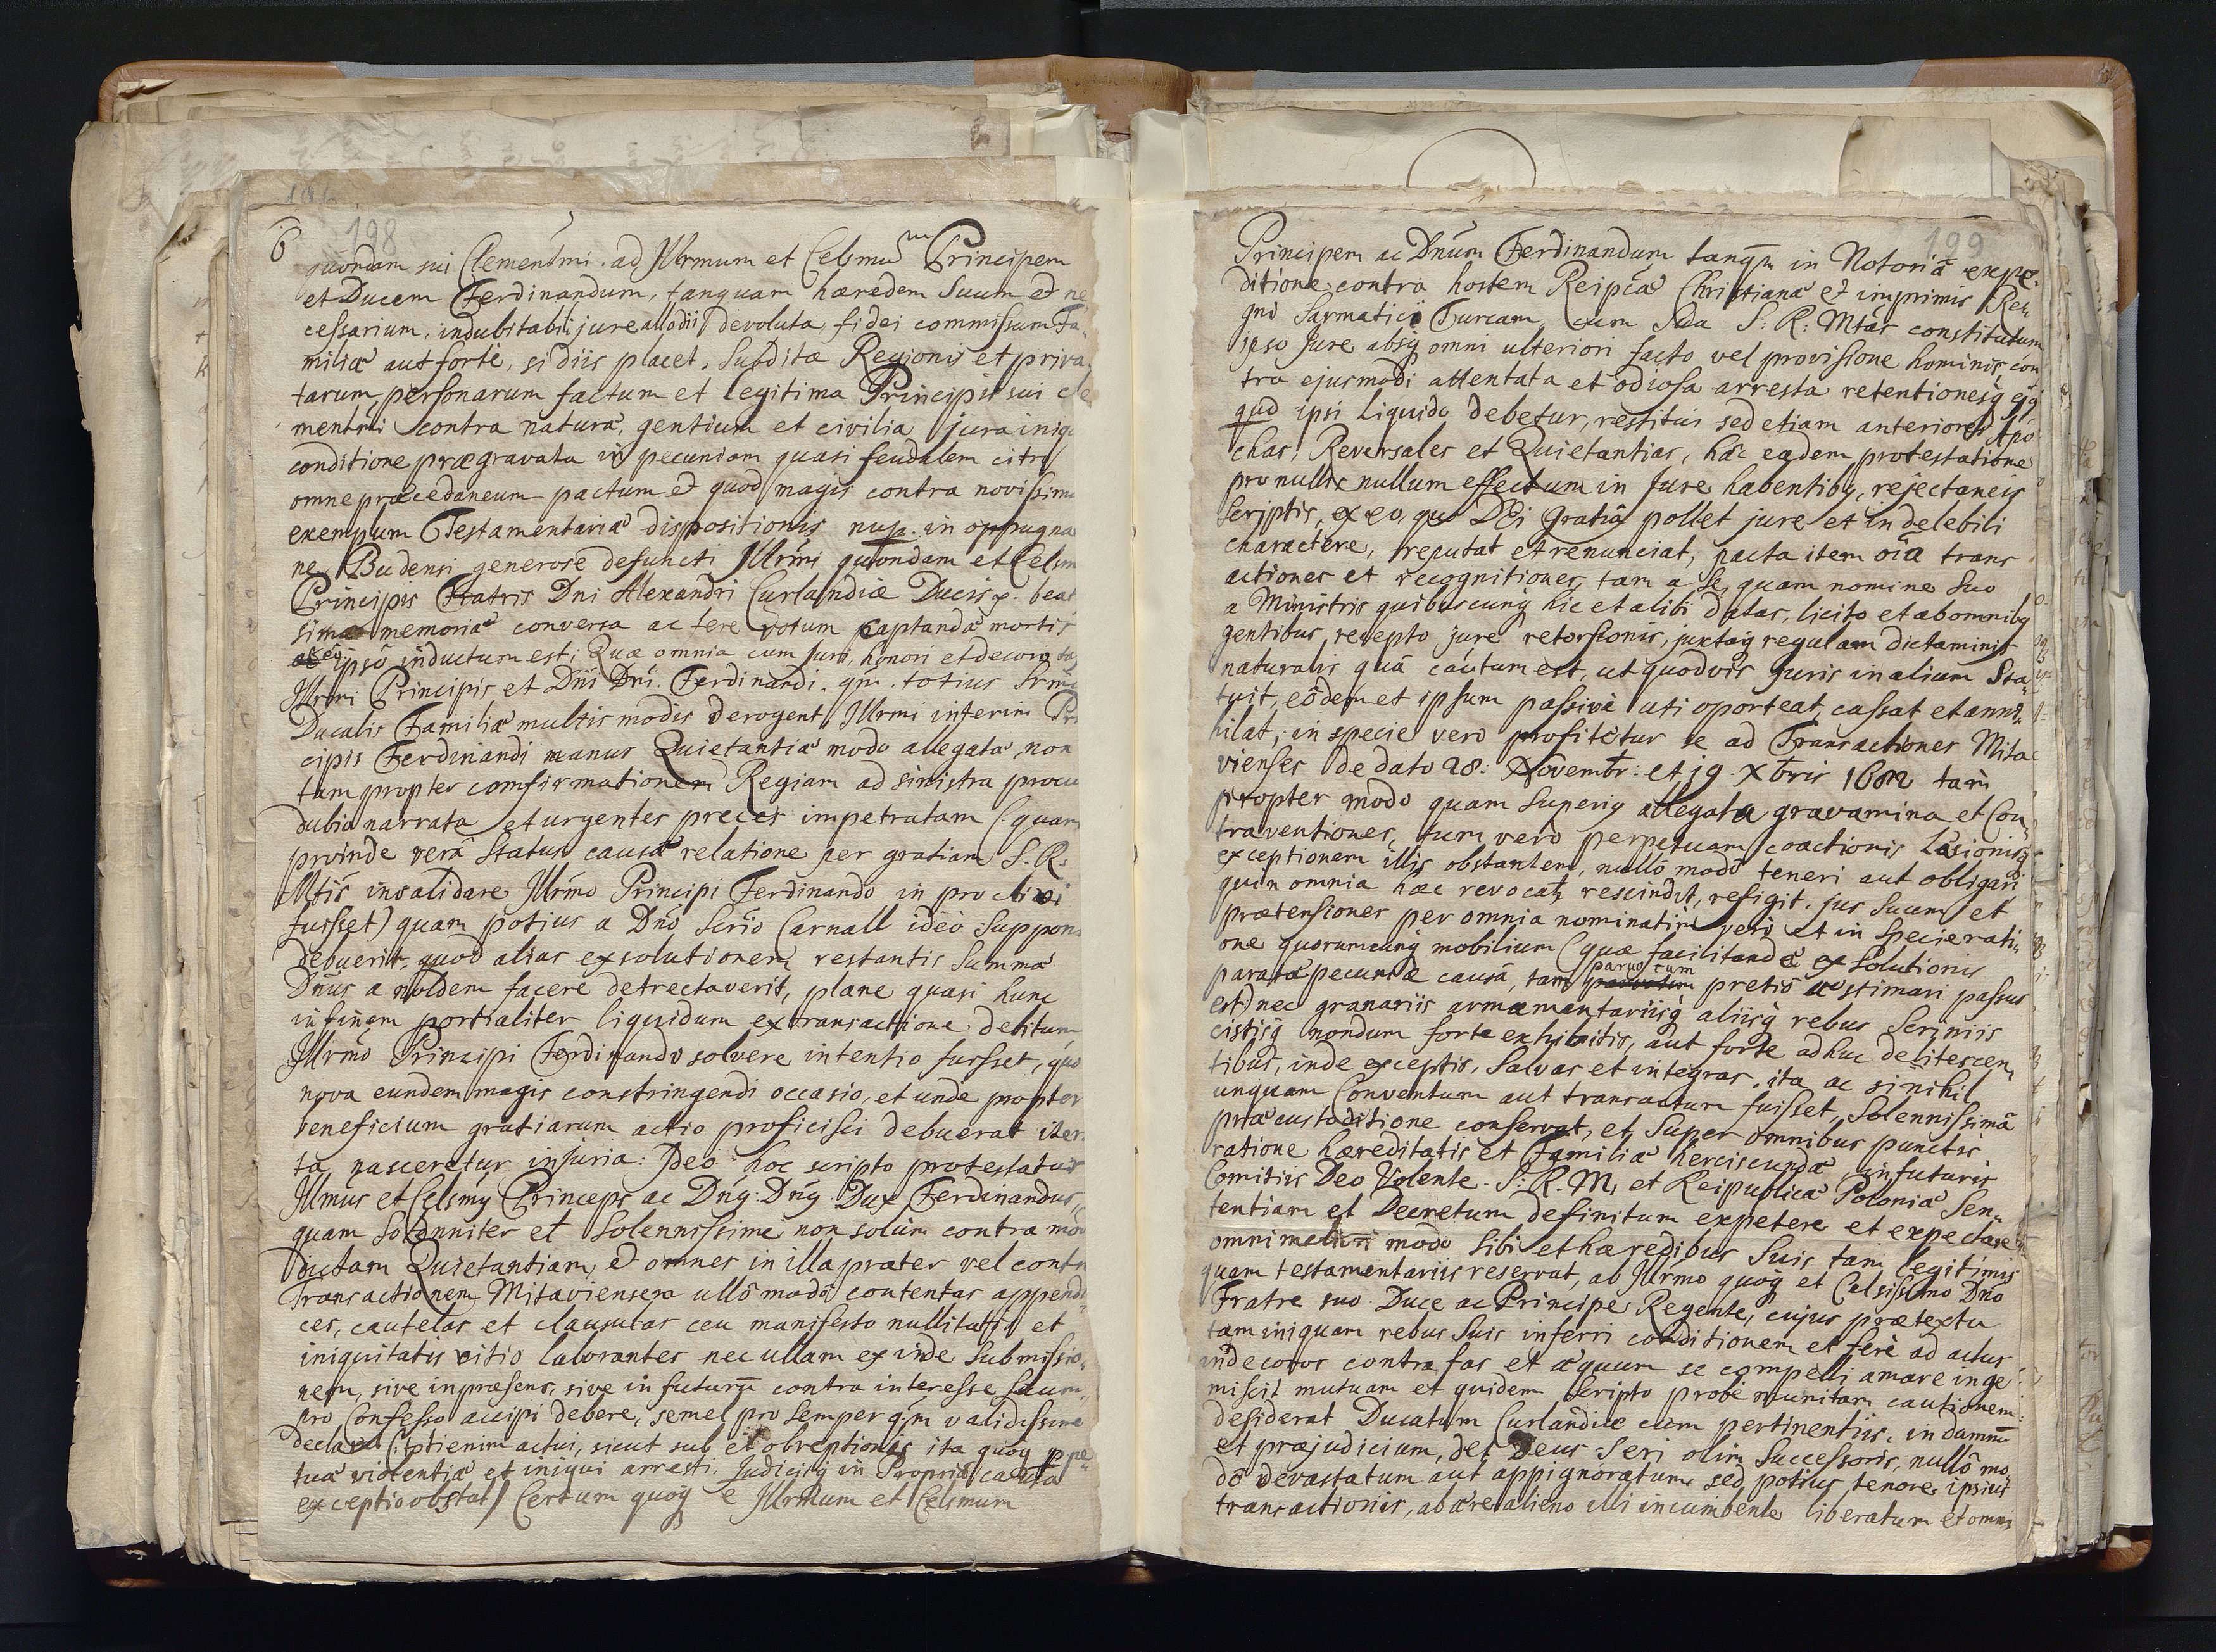 198
6
quondam sui Clementmi. ad Illrmum et Celsmũ Principem
et Ducem Ferdinandum, tanquam hæredem Suum et ne
cessarium, indubitabili jure allodii devoluta, fidei commissum Fa-
miliæ aut fortè, si diis placet, Subditæ Regionis et priva
tarum personarum factum et legitima Principis sui cle
mentmi contra naturæ, gentium et civilia jura iniq
conditione prægravata in pecuniam quasi feudalem citra
omne præcedaneum pactum et quod magis contra novissima
exemplum Testamentariæ dispositionis nup. in oppugna
ne Budensi generose defuncti Illrmi quondam et Celsm
Principis Fratris Dni Alexandri Curlandiæ Ducis p. beat
simæ memoriæ conversa ac fere votum captandæ mortis
eo ipso inductum est; Quæ omnia cum juri, honori et decori ta
Illrmi Principis et Dni Dni. Ferdinandi. qm. totius Srmæ
Ducalis Familiæ multis modis derogent, Illrmi interim Pri
cipis Ferdinandi manus Quietantiæ modo allegatæ, non
tam propter comfirmationem Regiam ad sinistra procu
dubia narrata et urgentes preces impetratam (: quam
proinde verâ Status causæ relatione per gratiam S. R.
Mtis invalidare Illrmo Principi Ferdinando in proclivi
fuisset) quam potius a Dno Serio Carnall ideo Suppon
debuerit, quod alias exsolutionem restantis Summæ
Dnus a Noldem facere detrectaverit, plane quasi hunc
in finam portialiter liquidum ex transactione debitum
Illrmo Principi Ferdinando solvere intentio fuisset, quo
nova eundem magis constringendi occasio, et unde propter
beneficium gratiarum actio proficisci debuerat iter
ta nasceretur injuria: Ideo hoc scripto protestatur
Illmus et Celsmq Princeps ac Dnq: Dnq. Dux Ferdinandus,
quam Solenniter et Solennissime non solùm contra mo
dictam Quietantiam, et omnes in illa præter vel contr
Transactionem Mitaviensem ullô modô contentas appendi
ces, cautelas et clausulas ceu manifesto nullitatis et
iniquitatis vitio laborantes nec ullam ex inde Submissio-
nem, sive in præsens, sive in futurũ contra interesse Suum,
pro Confesso accipi debere, semel pro semper qm validissime
declarat (:ptienim actui, sicut sub et obreptionis ita quoq ppe-
tuæ violentiæ et iniqui arresti Judiciiq in Propriâ causâ
exceptio obstat) Certum quoq e Illrmum et Celsmum
199
Principem ac Dnum Ferdinandum tanqm in Notoriâ expe-
ditione contra hostem Reipcæ Christianæ et imprimis Re-
gni Sarmatici Turcam, cum Sda S: R: Mtas constitutum
ipso jure absq omni ulteriori facto vel provisione hominis con
tra ejusmodi attentata et odiosa arresta retentionesq ejq
qud ipsi liquido debetur, restitui sed etiam anteriores Apo
chas, Reversales et Quietantias, hâc eadem protestatione
pro nullis nullum effectum in Jure habentibq, rejectaneis
Scriptis, ex eo, quo Dei Gratiâ pollet jure et indelebili
charactere, reputat et renunciat, pacta item oîa trans
actiones et recognitiones, tam a Se, quam nomine Suo
a Ministris quibuscunq hic et alibi datas, licito et ab omnibq
gentibus, recepto jure retorsionis, juxtaq regulam dictaminis
naturalis quâ cautum est, ut quodvis juris in alium Sta-
tuit, eôdem et ipsum passivè uti oporteat, cassat et anni-
hilat, in specie verò profitetur se ad Transactiones Mita
vienses de dato 28: Novembr: et 19. Xbris 1682 tam
propter modò quam Superiq allegata gravamina et Con-
traventiones, tum verò perpetuam coactionis læsionisq
exceptionem illis obstantem, nullô modô teneri aut obligari
quin omnia hæc revocat, rescindit, refigit. jus Suum et
prætensiones per omnia nominatim verò et in Specie rati-
one quorumcunq mobilium (quæ facilitandæ exsolutionis
paratæ pecuniæ causâ, tam parvo tum pretio æstimari passus
est) nec granariis armamentariisq aliisq rebus Scriniis
cistisq nondum forte exhibitis, aut forte adhuc delitescen,
tibus, inde exceptis, Salvas et integras, ita ac si nihil
unquam Conventum aut transactum fuisset, Solennissimâ
præcustoditione conservat, et Super omnibus punctis
ratione hæreditatis et Familiæ herciscundæ in futuris
Comitiis Deo Volente. S: R. M, et Reipublicæ Poloniæ Sen-
tentiam et Decretum definitum expetere et expectare
omni meliori modo Sibi et hæredibus Suis tam legitimis
quam testamentariis reservat, ab Illrmo quoq et Celsissimo Dno
Fratre suo Duce ac Principe Regente, cujus prætextu
tam iniquam rebus Suis inferri conditionem et ferè ad actus
indecoros contra fas et æquum se compelli amare inge
miscit mutuam et quidem Scripto probè munitam cautionem
desiderat Ducatum Curlandiæ cum pertinentiis, in damnũ
et præjudicium, det Deus Seri olim Successoris, nullô mo-
dô devastatum aut appignoratum, sed potius tenore ipsius
transactionis, ab ære alieno illi incumbente liberatum et omni